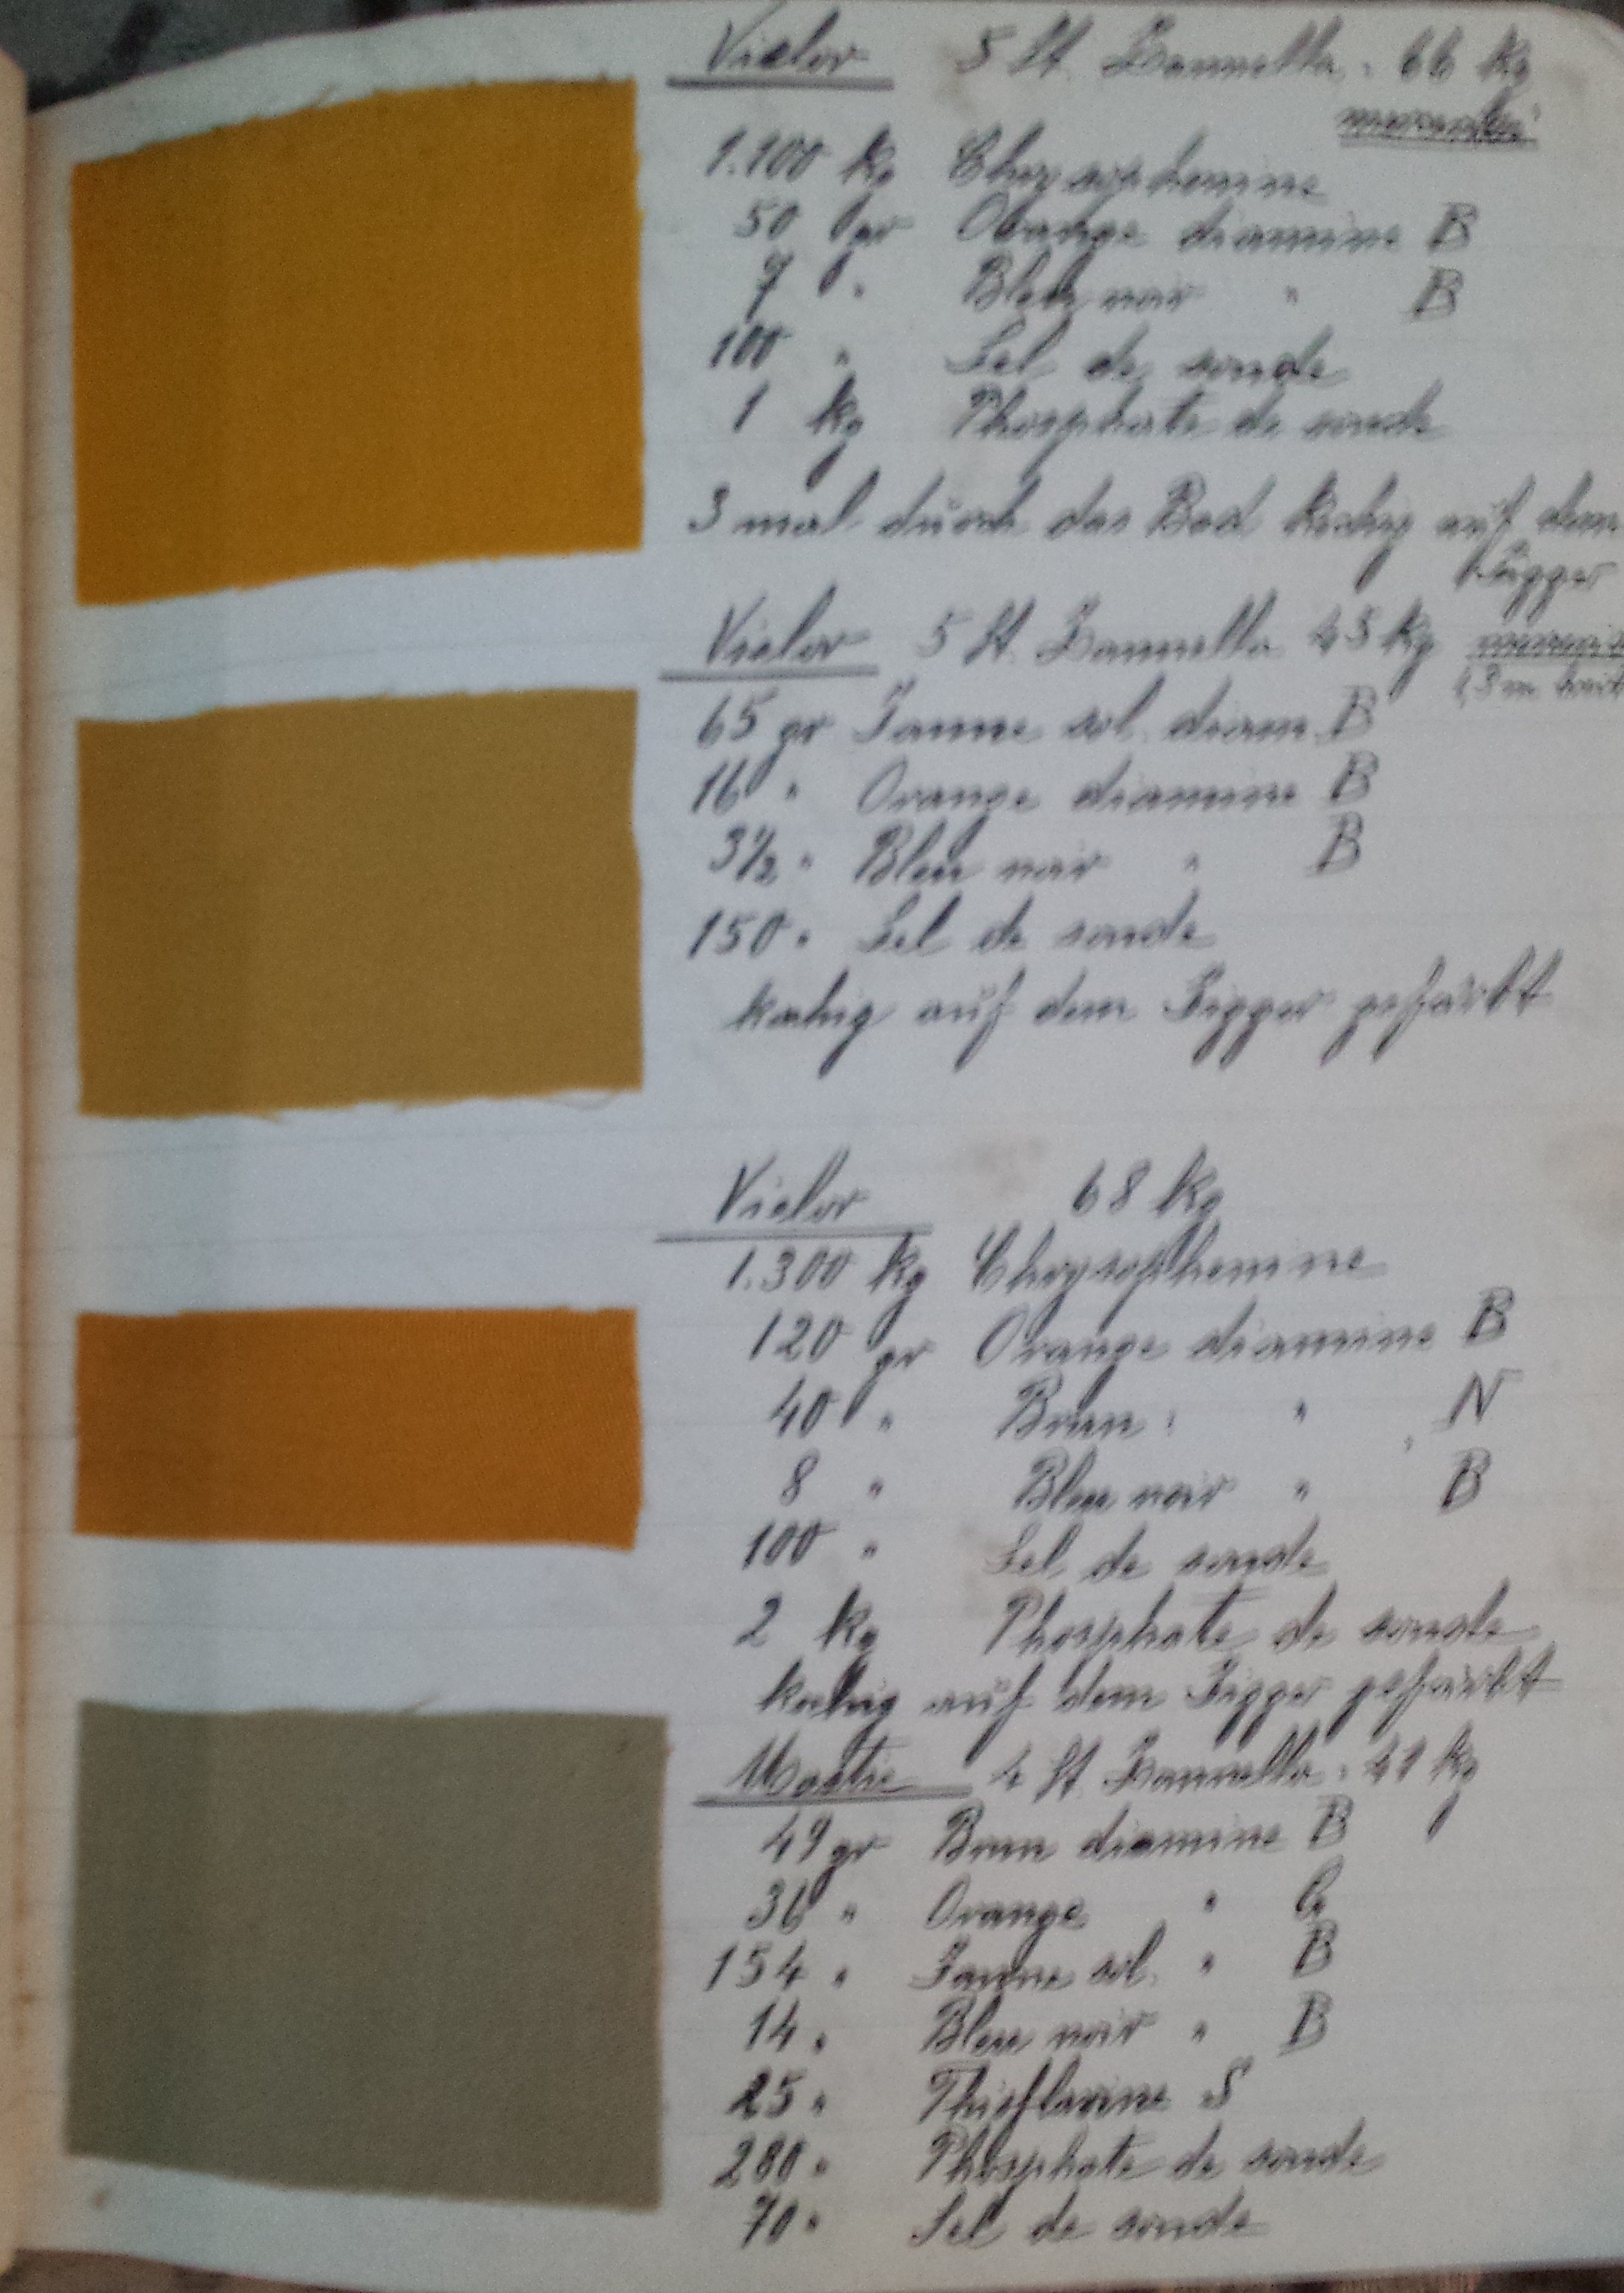 Victor 5 St. Zannella. 66 kg
1.100 kg Chrysophenine
50 gr Orange diamine B
7 " Bleu noir " B
100 " Sel de soude
1 kg Phosphate de soude
3 mal durch das Bad kochig auf dem
Jigger
Victor 5 St. Zannella 45 kg
1,3 m breit
65 gr Jaune sol. diam. B
16 " Orange diamine B
3 1/2 " Bleu noir " B
150 " Sel de soude
kochig auf dem Jigger gefärbt
Victor 68 kg
1.300 kg Chrysophenine
120 gr Orange diamine B
40 " Brun " N
8 " Bleu noir " B
100 " Sel de soude
2 kg Phosphate de soude
kochig auf dem Jigger gefärbt
Mastic 4 St. Zannella. 41 kg
49 gr Brun diamine B
36 " Orange " G
154 " Jaune sol. " B
14 " Bleu noir " B
25 " Thioflavine S
280 " Phosphate de soude
70 " Sel de soude